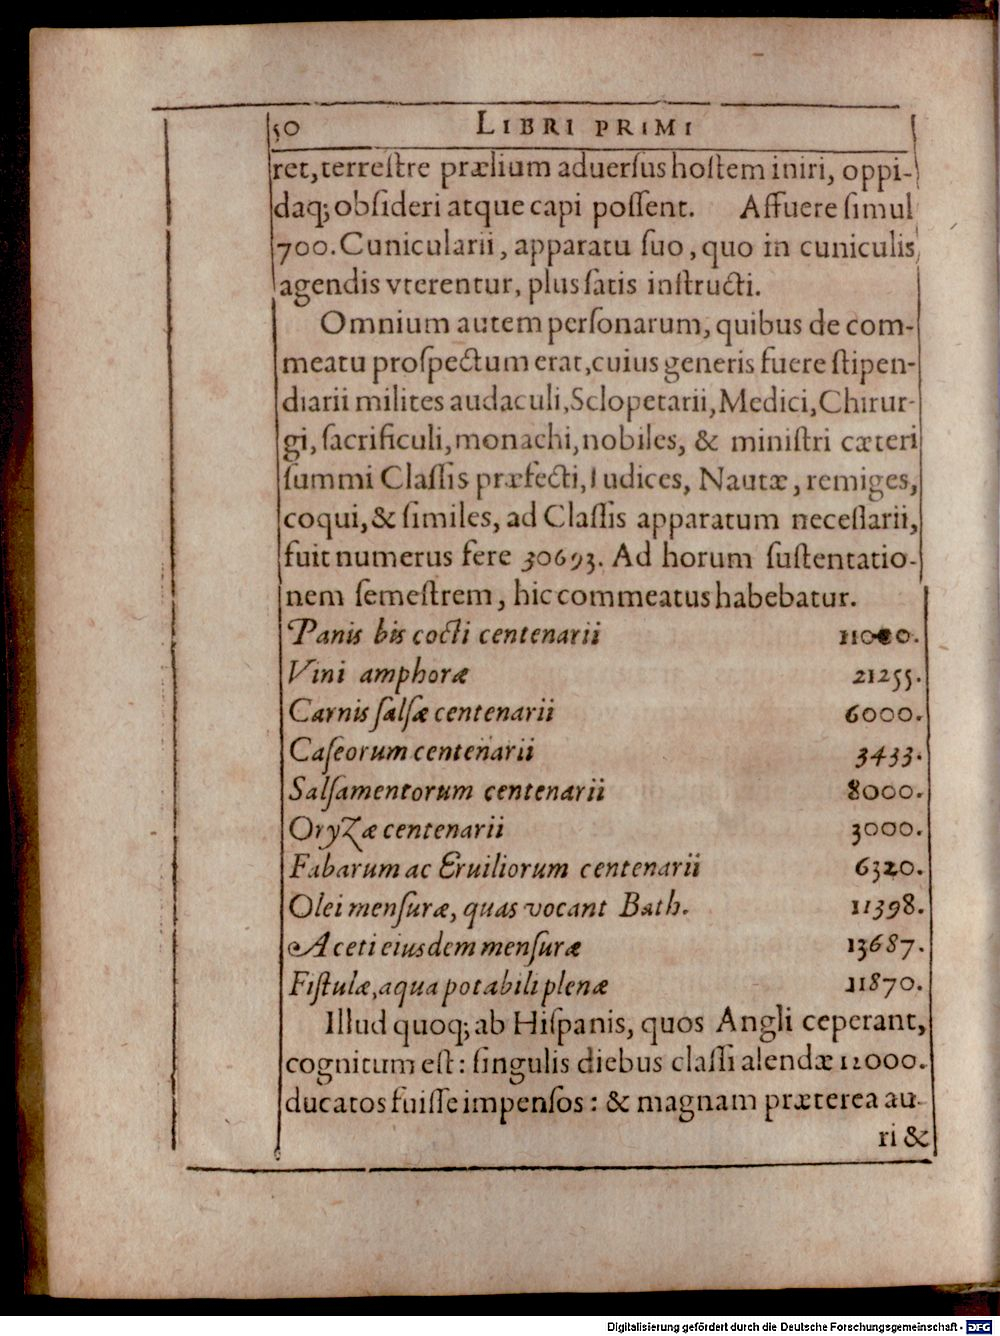 50 LIBRI PRIMI
ret, terreſtre prælium aduerſus hoſtem iniri, oppi-
daq; obſideri atque capi poſſent. Affuere ſimul
700. Cunicularii, apparatu ſuo, quo in cuniculis
agendis vterentur, plus ſatis inſtructi.
Omnium autem perſonarum, quibus de com-
meatu proſpectum erat, cuius generis fuere ſtipen-
diarii milites audaculi, Sclopetarii, Medici, Chirur-
gi, ſacrificuli, monachi, nobiles, & miniſtri cæteri
ſummi Claſſis præfecti, Iudices, Nautæ, remiges,
coqui, & ſimiles, ad Claſſis apparatum neceſſarii,
fuit numerus fere 30693. Ad horum ſuſtentatio-
nem ſemeſtrem, hic commeatus habebatur.
Panis bis cocti centenarii 11000.
Vini amphoræ 21255.
Carnis ſalſæ centenarii 6000.
Caſeorum centenarii 3433.
Salſamentorum centenarii 8000.
Oryzæ centenarii 3000.
Fabarum ac Eruiliorum centenarii 6320.
Olei menſuræ, quas vocant Bath. 11398.
Aceti eiusdem menſuræ 13687.
Fiſtulæ, aqua potabili plenæ 11870.
Illud quoq; ab Hiſpanis, quos Angli ceperant,
cognitum eſt: ſingulis diebus claſſi alendæ 12000.
ducatos fuiſſe impenſos: & magnam præterea au-
ri &
Digitalisierung gefördert durch die Deutsche Forschungsgemeinschaft - DFG